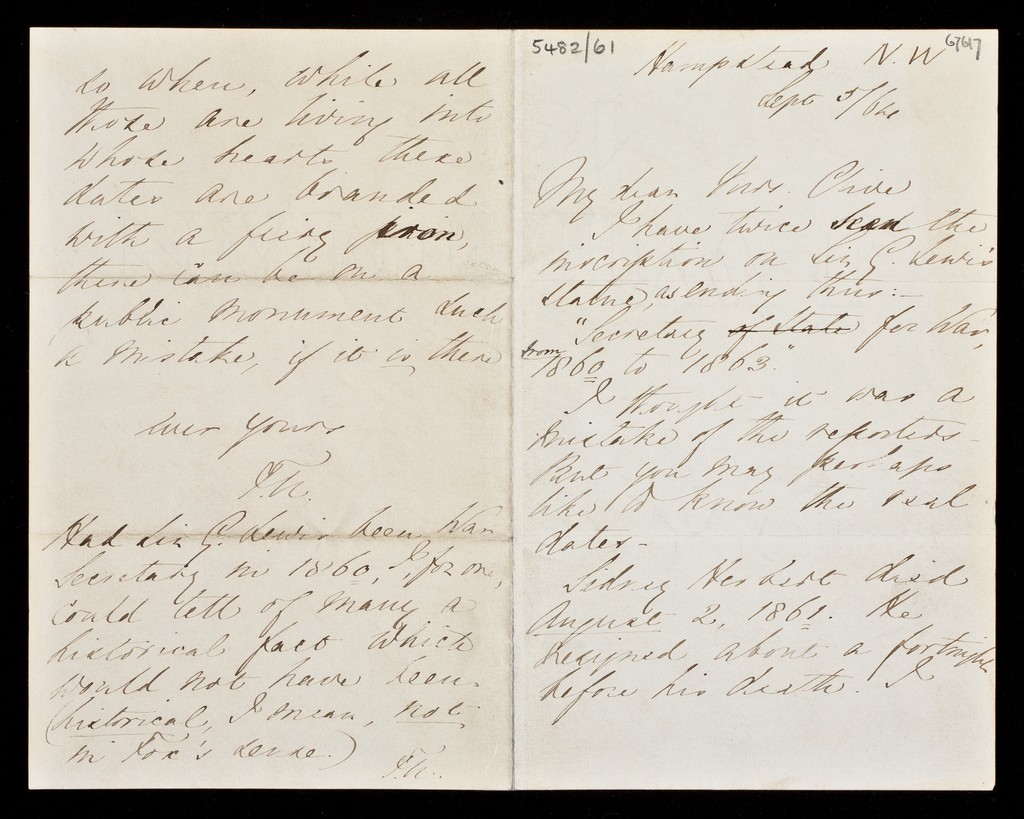 5482/61
67617
Hampstead N.W
Sept 5/64
My dear Mrs. Clive
I have twice seen the
inscription on Sir G. Lewis's
statue, as ending thus:-
"Secretary of State for War,
from
1860 to 1863."
I thought it was a
mistake of the reporters -
But you may perhaps
like to know the real
dates -
Sidney Herbert died
August 2, 1861. He
resigned about a fortnight
before his death. I
so when, while all
those are living into
whose hearts these
dates are branded
with a fiery iron,
there can be on a
public monument such
a mistake, if it is there
ever yours
F.N.
Had Sir G. Lewis been War
Secretary in 1860, I, for one,
could tell of many a
historical fact which
would not have been.
(historical, I mean, not
in Fox's sense.)
F.N.